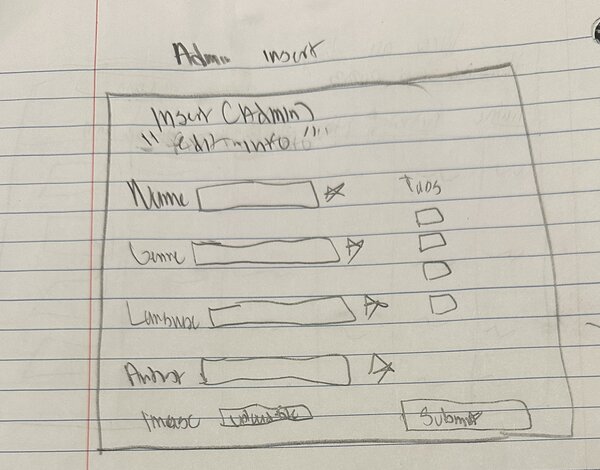 Admin insert
Insert (Admin)
"edit info"
Name
Tags
Genre
Language
Author
Image
Submit